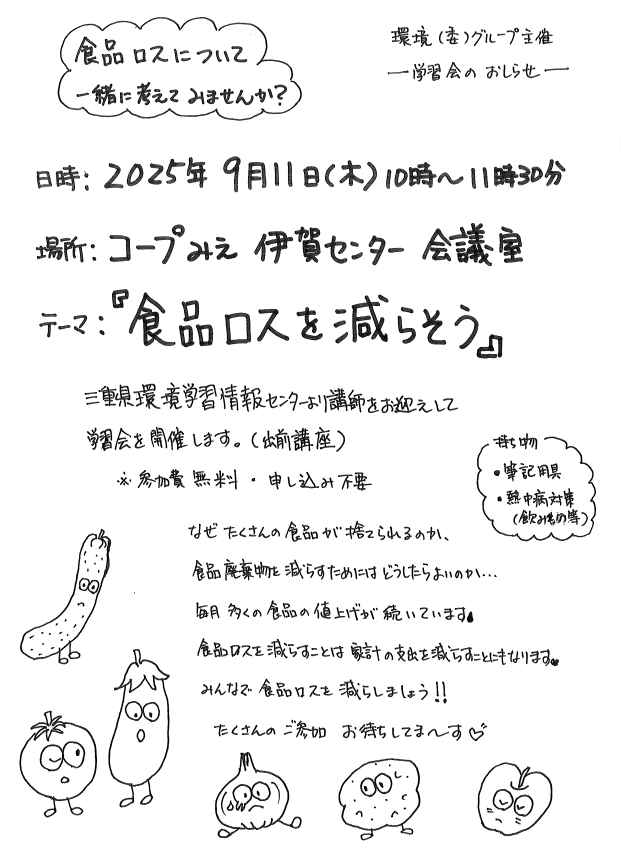 食品ロスについて
一緒に考えてみませんか?
環境(委)グループ主催
ー学習会のおしらせー
日時: 2025年 9月11日(木) 10時〜11時30分
場所: コープみえ 伊賀センター 会議室
テーマ:『食品ロスを減らそう』
三重県環境学習情報センターより講師をお迎えして
学習会を開催します。(出前講座)
※参加費無料・申し込み不要
持ち物
•筆記用具
•熱中病対策
(飲みもの等)
なぜたくさんの食品が捨てられるのか、
食品廃棄物を減らすためにはどうしたらよいのか…
毎月多くの食品の値上げが続いています。
食品ロスを減らすことは家計の支出を減らすことにもなります。
みんなで食品ロスを減らしましょう!!
たくさんのご参加 お待ちしてま〜す♡